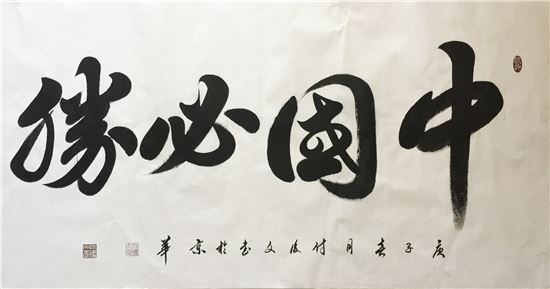 中國必勝
庚子春月付文書於京華